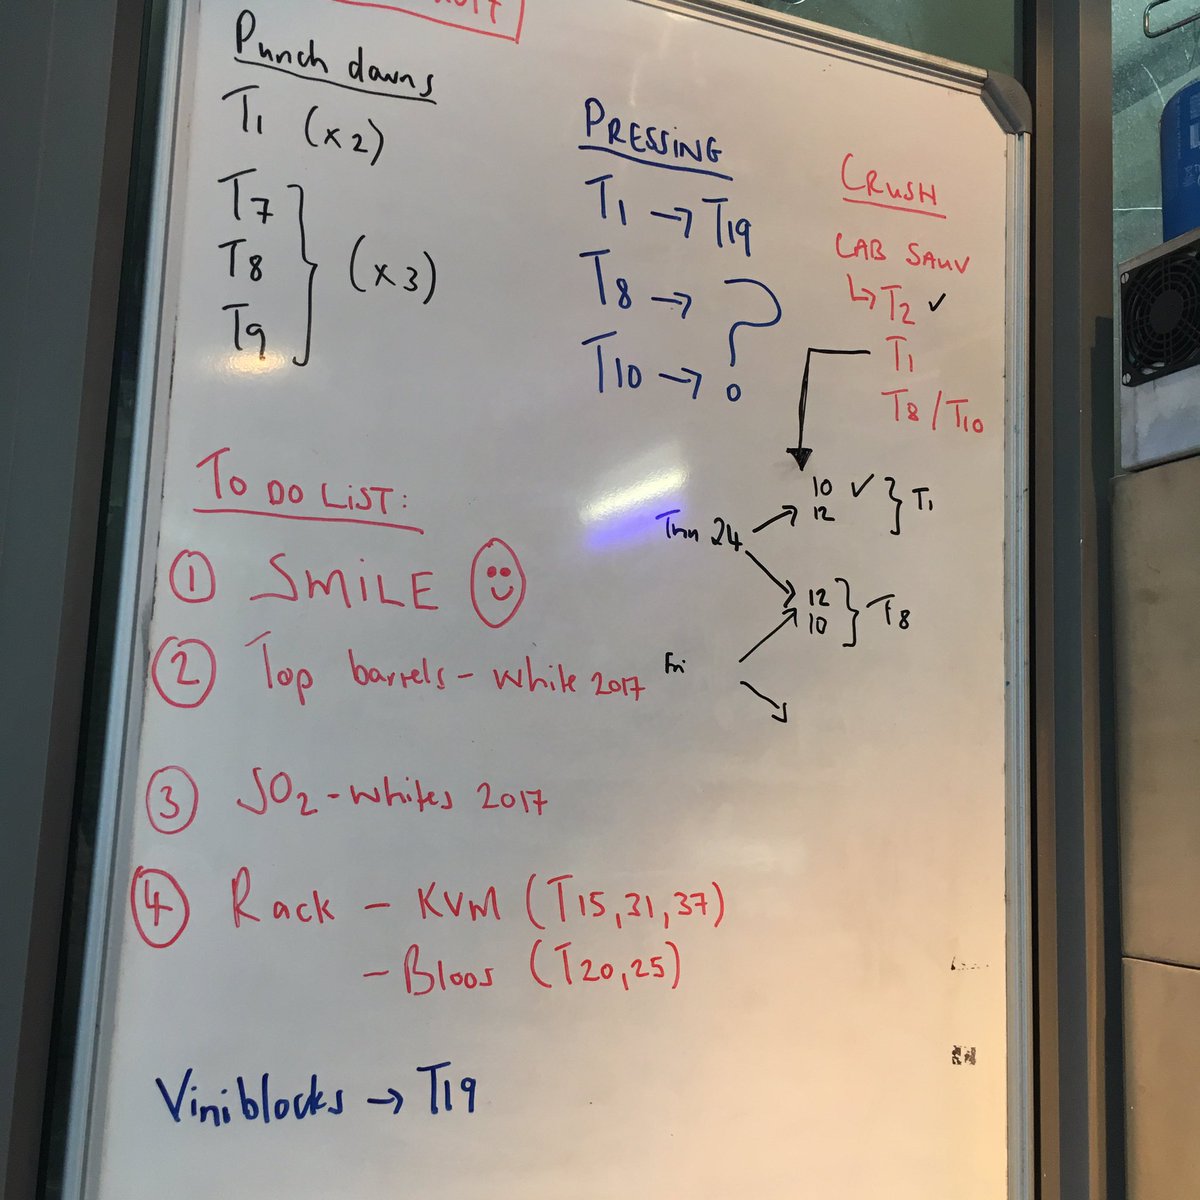 Punch downs
T1 (x2)
T7
T8
T9
(x3)
PRESSING
T1 → T19
T8 →
T10 →
?
CRUSH
CAB SAUV
↳ T2 ✓
T1
T8/T10
24
10 ✓
12
T1
12
10
T8
Fri
TO DO LIST:
1 SMILE
2 Top barrels - white 2017
3 SO2 - whites 2017
4 Rack - KVM (T15,31,37)
- Bloos (T20,25)
Viniblocks → T19